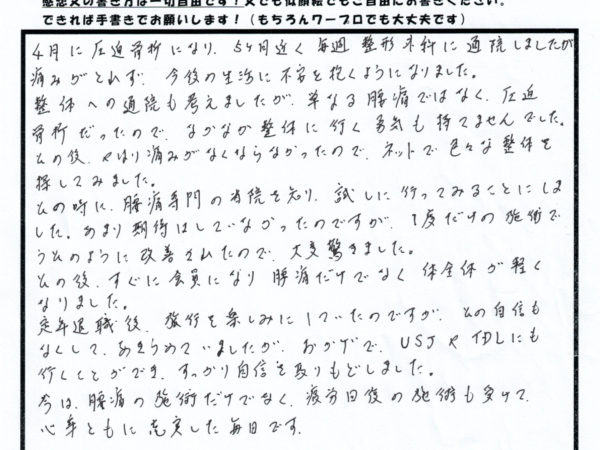 感想文の書き方は一切自由です！文でも似顔絵でもご自由にお書きください。
できれば手書きでお願いします！（もちろんワープロでも大丈夫です）
4月に圧迫骨折になり、5ヶ月近く毎週整形外科に通院しましたが
痛みがとれず、今後の生活に不安を抱くようになりました。
整体への通院も考えましたが、単なる腰痛ではなく、圧迫
骨折だったので、なかなか整体に行く勇気も持てませんでした。
その後、やはり痛みがなくならなかったので、ネットで色々な整体を
探してみました。
その時に、腰痛専門の当院を知り、試しに行ってみることにしま
した。あまり期待はしていなかったのですが、1度だけの施術で
うそのように改善されたので、大変驚きました。
その後、すぐに会員になり腰痛だけでなく体全体が軽く
なりました。
定年退職後、旅行を楽しみにしていたのですが、その自信も
なくして、あきらめていましたが、おかげで、USJやTDLにも
行くことができ、すっかり自信を取りもどしました。
今は、腰痛の施術だけでなく、疲労回復の施術も受けて、
心身ともに充実した毎日です。